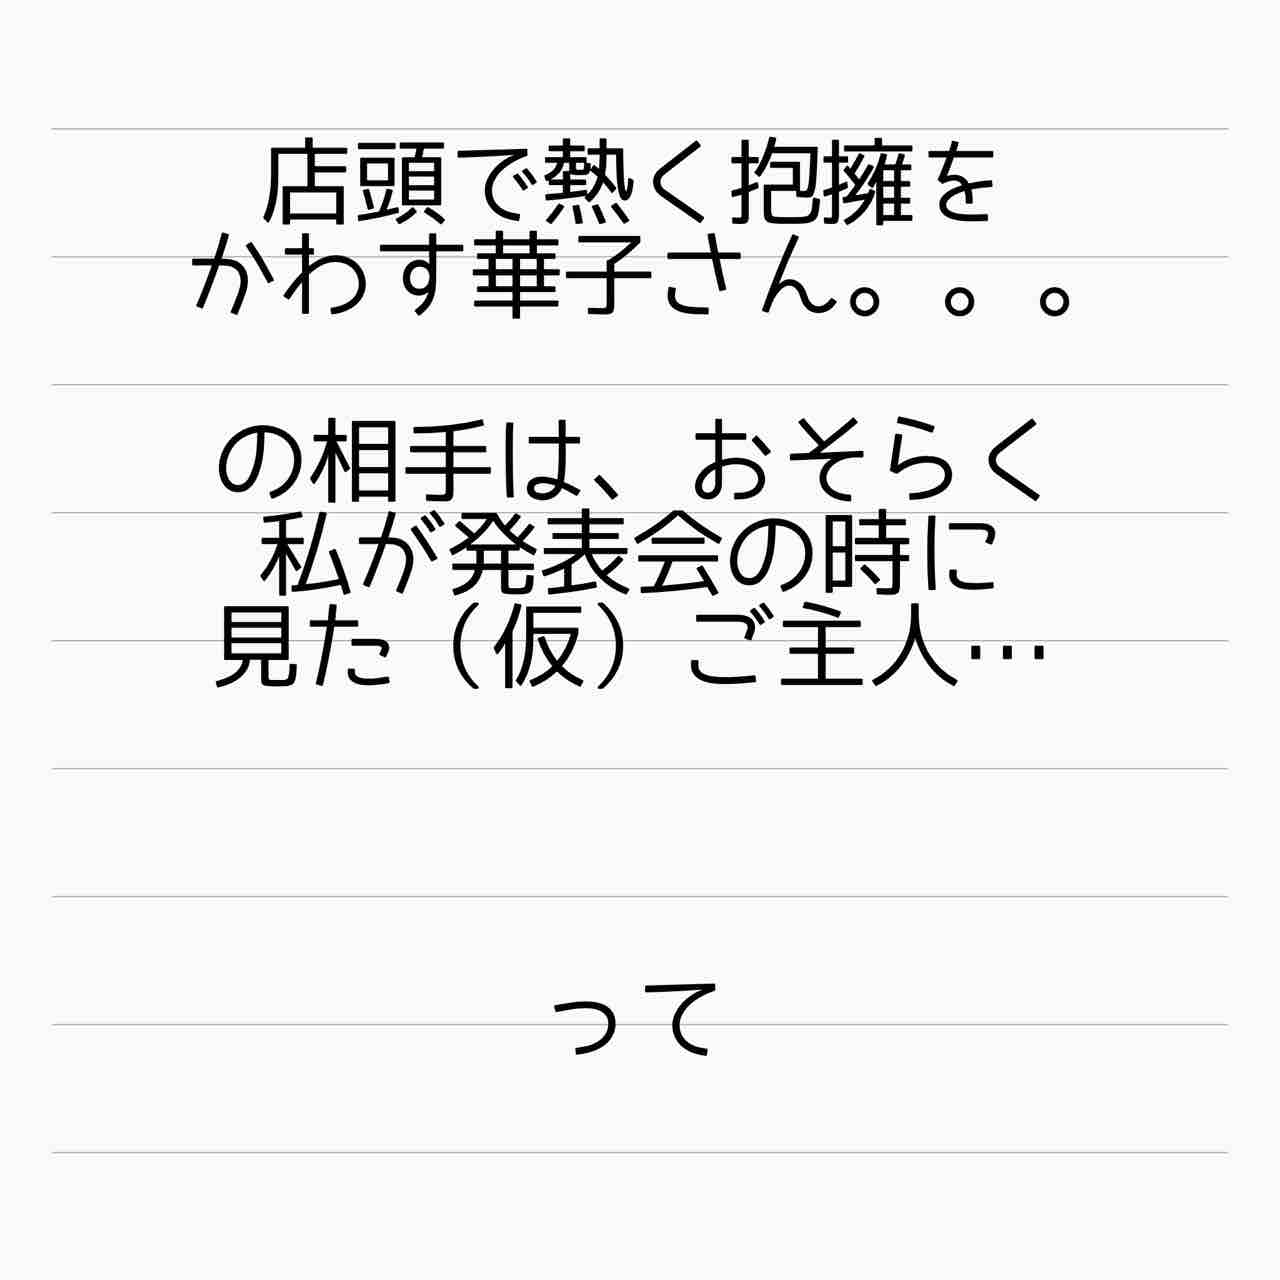 店頭で熱く抱擁を
かわす華子さん。。。
の相手は、おそらく
私が発表会の時に
見た（仮）ご主人…
って